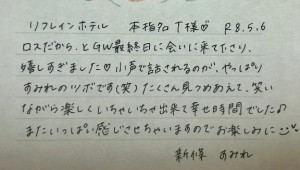 リフレインホテル 本指名 T様♡ R8.5.6
ロスだから、とGW最終日に会いに来て下さり、
嬉しすぎました♡小声で話されるのが、やっぱり
すみれのツボです(笑)たくさん見つめあえて、笑い
ながら楽しくいちゃいちゃ出来て幸せ時間でした♪
またいっぱい感じさせちゃいますのでお楽しみに♡
新條 すみれ